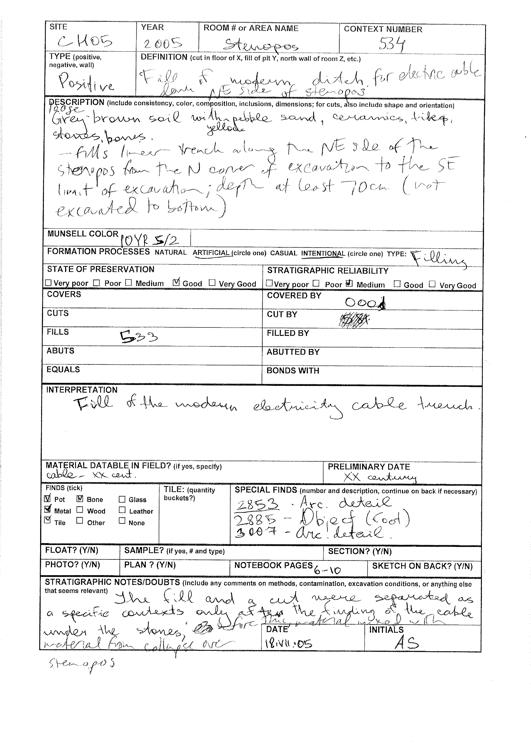 SITE YEAR ROOM # or AREA NAME CONTEXT NUMBER
CH05 2005 Stenopos 534
TYPE (positive, negative, wall) DEFINITION (cut in floor of X, fill of pit Y, north wall of room Z, etc.)
Positive Fill of modern ditch for electric cable
down NE side of stenopos
DESCRIPTION (include consistency, color, composition, inclusions, dimensions; for cuts, also include shape and orientation)
loose
Grey-brown soil with pebble sand, ceramics, tiles,
stones, bones. yellow
- fills linear trench along the NE side of the
stenopos from the N corner of excavation to the SE
limit of excavation; depth at least 70cm (not
excavated to bottom)
MUNSELL COLOR 10YR 5/2
FORMATION PROCESSES NATURAL ARTIFICIAL (circle one) CASUAL INTENTIONAL (circle one) TYPE: Filling
STATE OF PRESERVATION STRATIGRAPHIC RELIABILITY
Very poor Poor Medium Good Very Good Very poor Poor Medium Good Very Good
COVERS COVERED BY 0001
CUTS CUT BY
FILLS 533 FILLED BY
ABUTS ABUTTED BY
EQUALS BONDS WITH
INTERPRETATION
Fill of the modern electricity cable trench.
MATERIAL DATABLE IN FIELD? (if yes, specify) PRELIMINARY DATE
cable - XX cent. XX century
FINDS (tick) TILE: (quantity buckets?) SPECIAL FINDS (number and description, continue on back if necessary)
Pot Bone Glass 2853 - Arc. detail
Metal Wood Leather 2885 - Object (Cool)
Tile Other None 3007 - arc. detail.
FLOAT? (Y/N) SAMPLE? (if yes, # and type) SECTION? (Y/N)
PHOTO? (Y/N) PLAN ? (Y/N) NOTEBOOK PAGES 6-10 SKETCH ON BACK? (Y/N)
STRATIGRAPHIC NOTES/DOUBTS (include any comments on methods, contamination, excavation conditions, or anything else
that seems relevant) The fill and a cut were separated as
a specific contexts only after the finding of the cable
under the stones; before this material mixed with
material from collapse over
stenopos
DATE INITIALS
18.VII.05 AS